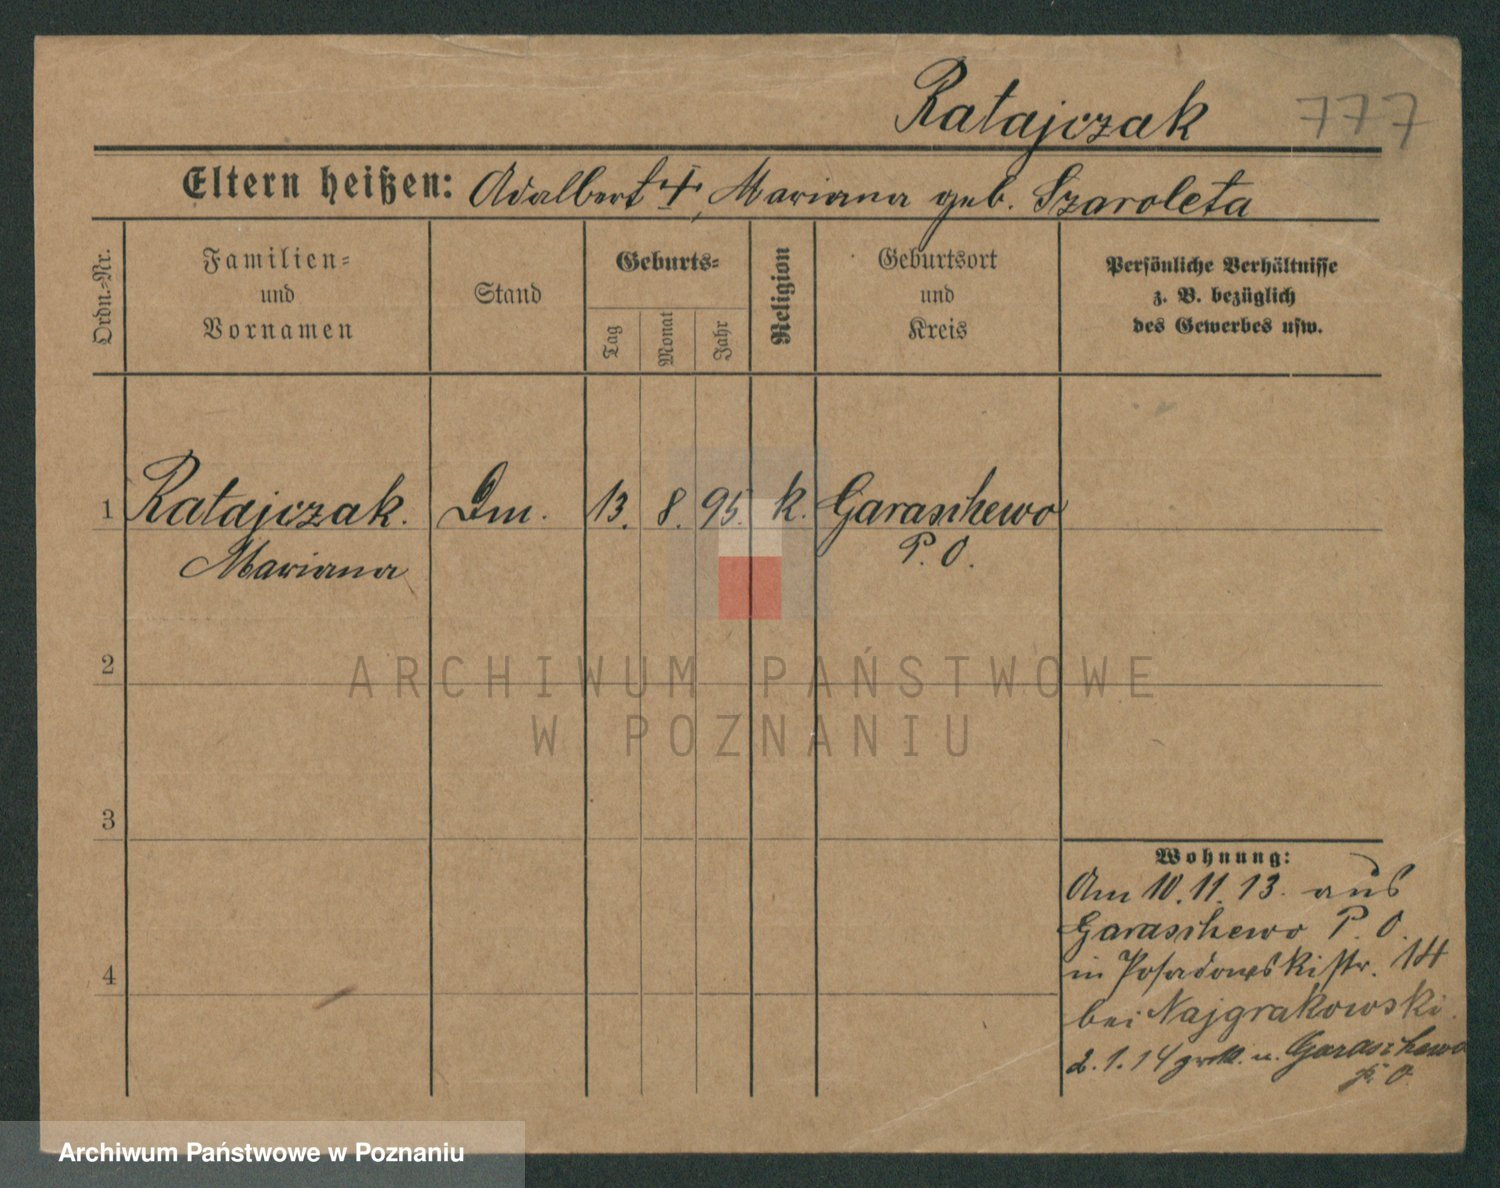 Ratajczak 777
Eltern heißen: Adalbert †, Mariana geb. Szaroleta
Ordn.-Nr.
Familien-
und
Vornamen
Stand
Geburts-
Tag
Monat
Jahr
Religion
Geburtsort
und
Kreis
Persönliche Verhältnisse
z. B. bezüglich
des Gewerbes usw.
1 Ratajczak. Dm. 13. 8. 95. k. Garaschewo
Mariana P. O.
2
3
4
Wohnung:
Am 10.11.13. aus
Garaschewo P. O.
in Posadowskistr. 14
bei Najgrakowski.
2.1.14 n. Garaschewo
P. O.
ARCHIWUM PAŃSTWOWE
W POZNANIU
Archiwum Państwowe w Poznaniu